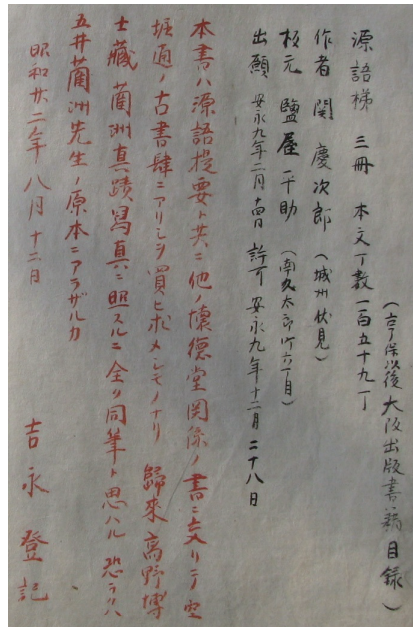 源語梯 三冊 本文丁数一百五十九丁
(享保以後大阪出版書籍目録)
作者 関 慶次郎 (城州伏見)
板元 鹽屋平助 (南久太郎町六丁目)
出願 安永九年二月十四日 許可 安永九年十二月二十八日
本書ハ源語提要ト共ニ他ノ懐徳堂関係ノ書ニ交リテ空
堀通ノ古書肆ニアリシヲ買ヒ求メシモノナリ 歸來高野博
士藏蘭洲真蹟寫真ニ照スルニ全ク同筆ト思ハル 恐ラクハ
五井蘭洲先生ノ原本ニアラザルカ
昭和廿二年八月十二日
吉永 登記